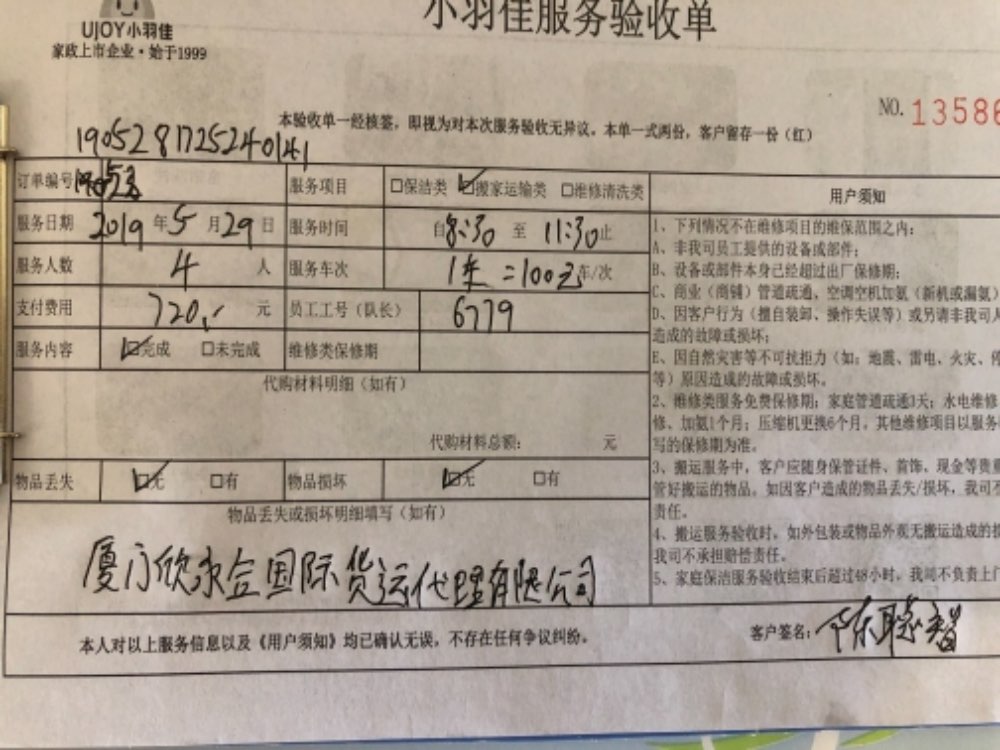 小羽佳服务验收单
UJOY小羽佳
家政上市企业·始于1999
NO. 13586
本验收单一经核签，即视为对本次服务验收无异议。本单一式两份，客户留存一份（红）
1905281725240141
订单编号
服务项目 □保洁类 ☑搬家运输类 □维修清洗类
服务日期 2019 年 5 月 29 日 服务时间 自 8:30 至 11:30 止
服务人数 4 人 服务车次 1车 =100元 车/次
支付费用 720 元 员工工号（队长） 6779
服务内容 ☑完成 □未完成 维修类保修期
代购材料明细（如有）
代购材料总额： 元
物品丢失 ☑无 □有 物品损坏 ☑无 □有
物品丢失或损坏明细填写（如有）
厦门欣永合国际货运代理有限公司
用户须知
1、下列情况不在维修项目的维保范围之内：
A、非我司员工提供的设备或部件；
B、设备或部件本身已经超过出厂保修期；
C、商业（商铺）管道疏通，空调空机加氨（新机或漏氨）
D、因客户行为（擅自装卸、操作失误等）或另请非我司人
造成的故障或损坏；
E、因自然灾害等不可抗拒力（如：地震、雷电、火灾、停
等）原因造成的故障或损坏。
2、维修类服务免费保修期：家庭管道疏通3天；水电维修
修、加氨1个月；压缩机更换6个月，其他维修项目以服务
写的保修期为准。
3、搬运服务中，客户应随身保管证件、首饰、现金等贵重
管好搬运的物品。如因客户造成的物品丢失/损坏，我司不
责任。
4、搬运服务验收时，如外包装或物品外观无搬运造成的损
我司不承担赔偿责任。
5、家庭保洁服务验收结束后超过48小时，我司不负责上门
本人对以上服务信息以及《用户须知》均已确认无误，不存在任何争议纠纷。
客户签名：